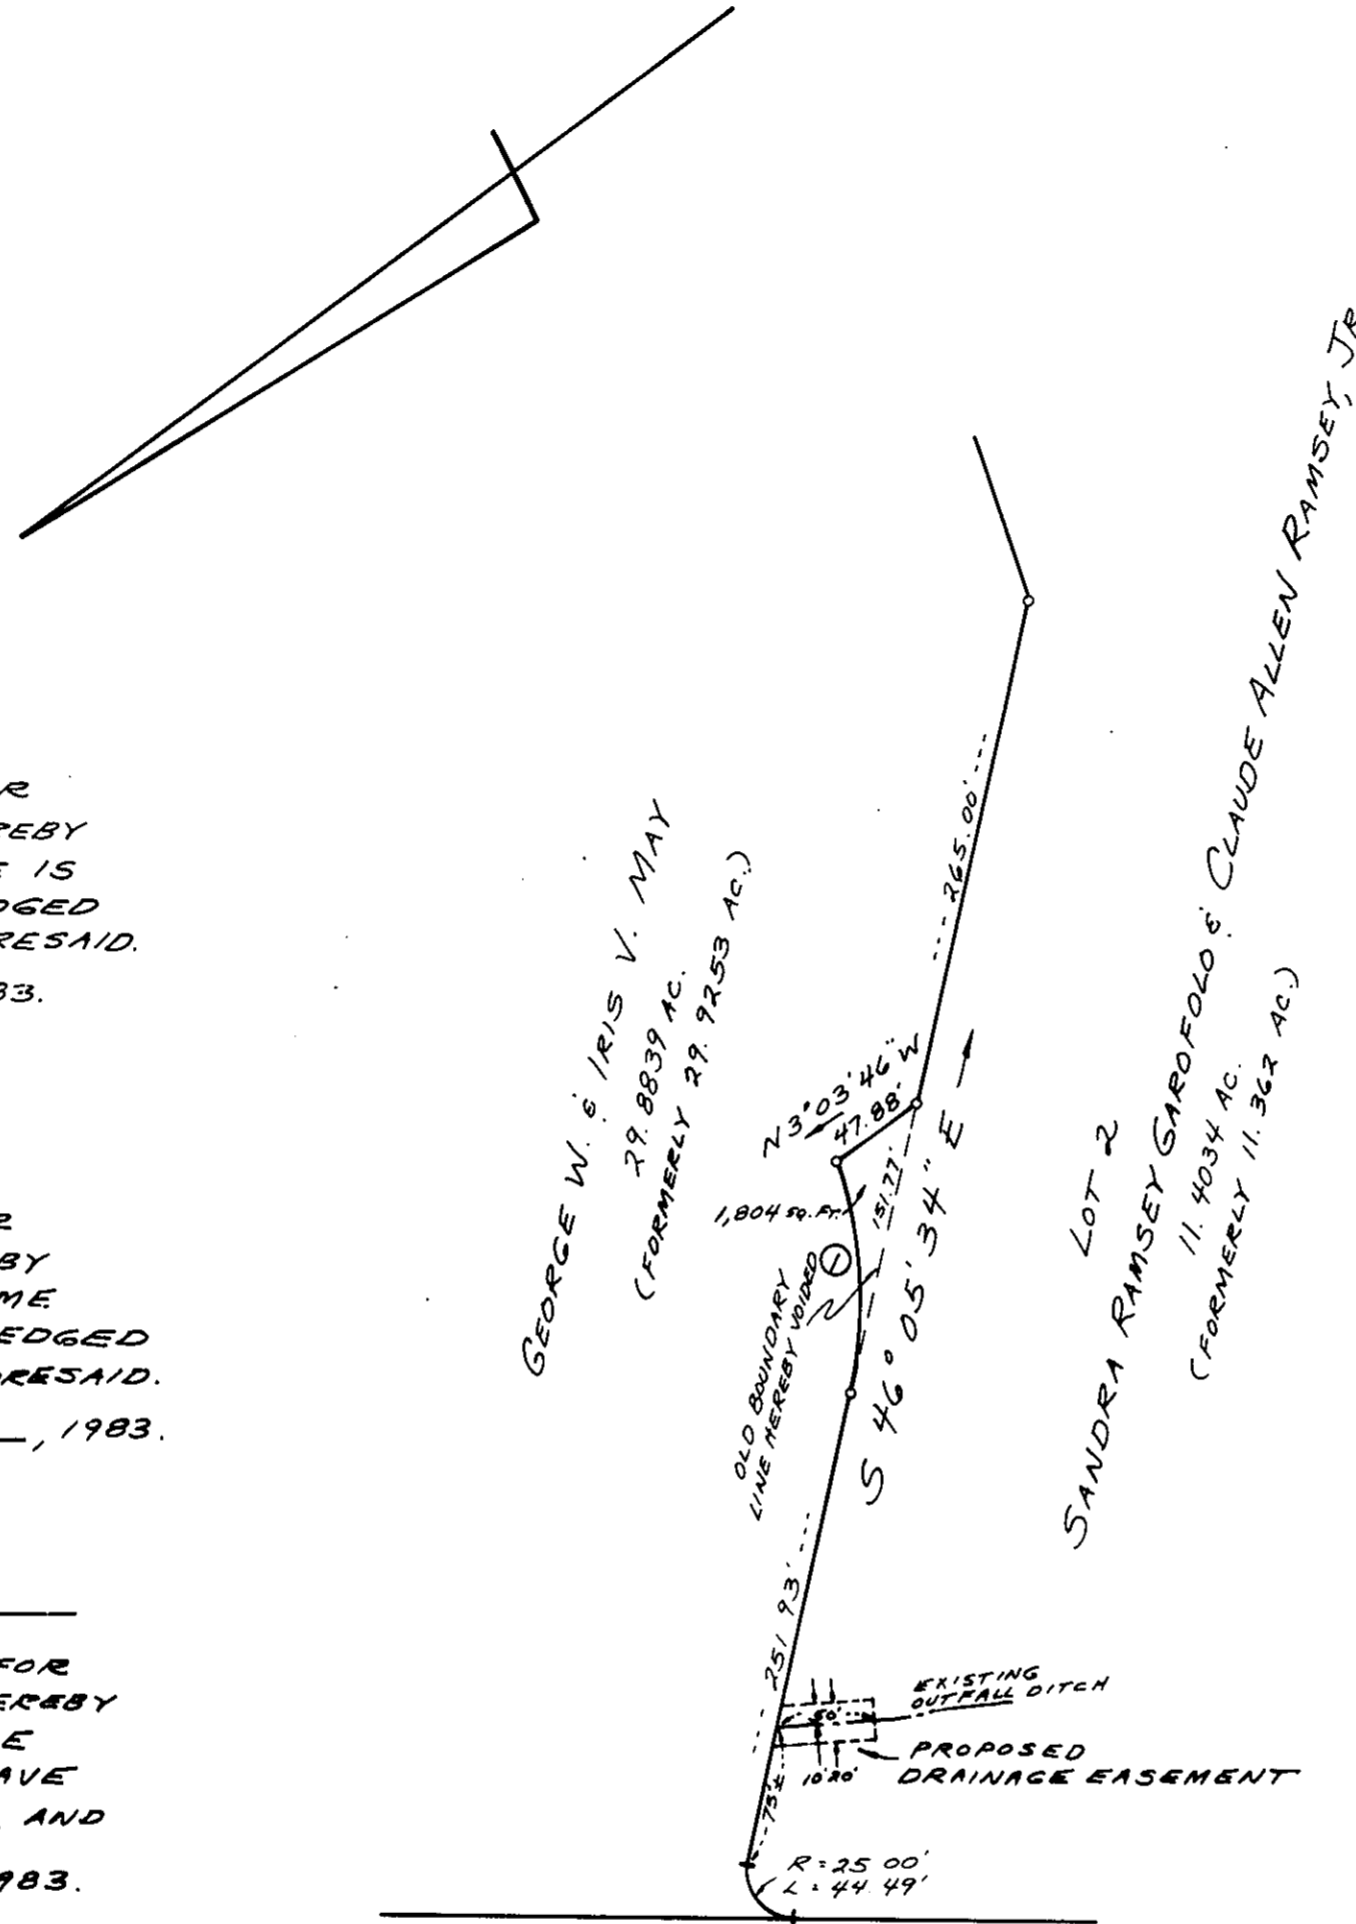 R
REBY
E IS
DGED
RESAID.
83.
R
BY
ME
EDGED
ORESAID.
, 1983.
FOR
EREBY
E
AVE
AND
983.
GEORGE W. & IRIS V. MAY
29.8839 AC.
(FORMERLY 29.9253 AC.)
265.00'
N 3° 03' 46" W
47.88'
151.77'
1,804 SQ. FT.
1
OLD BOUNDARY
LINE HEREBY VOIDED
S 46° 05' 34" E
LOT 2
SANDRA RAMSEY GAROFOLO & CLAUDE ALLEN RAMSEY, JR
11.4034 AC.
(FORMERLY 11.362 AC.)
251 93'
EXISTING
OUTFALL DITCH
50'
PROPOSED
DRAINAGE EASEMENT
10' 20'
75'±
R = 25 00'
L = 44.49'